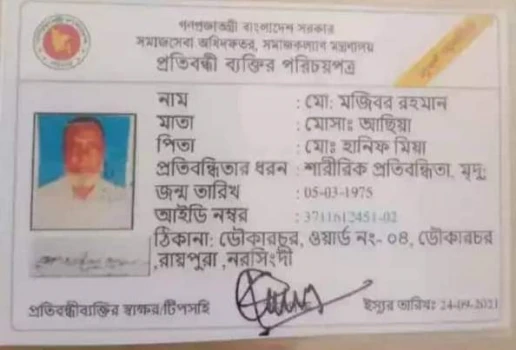 গণপ্রজাতন্ত্রী বাংলাদেশ সরকার
সমাজসেবা অধিদফতর, সমাজকল্যাণ মন্ত্রণালয়
প্রতিবন্ধী ব্যক্তির পরিচয়পত্র
নাম : মো: মজিবর রহমান
মাতা : মোসাঃ আছিয়া
পিতা : মোঃ হানিফ মিয়া
প্রতিবন্ধিতার ধরন : শারীরিক প্রতিবন্ধিতা, মৃদু;
জন্ম তারিখ : 05-03-1975
আইডি নম্বর : 3711612451-02
ঠিকানা: ডৌকারচর, ওয়ার্ড নং- 08, ডৌকারচর
,রায়পুরা ,নরসিংদী
প্রতিবন্ধীব্যক্তির স্বাক্ষর/টিপসহি
ইস্যুর তারিখ: 24-09-2021